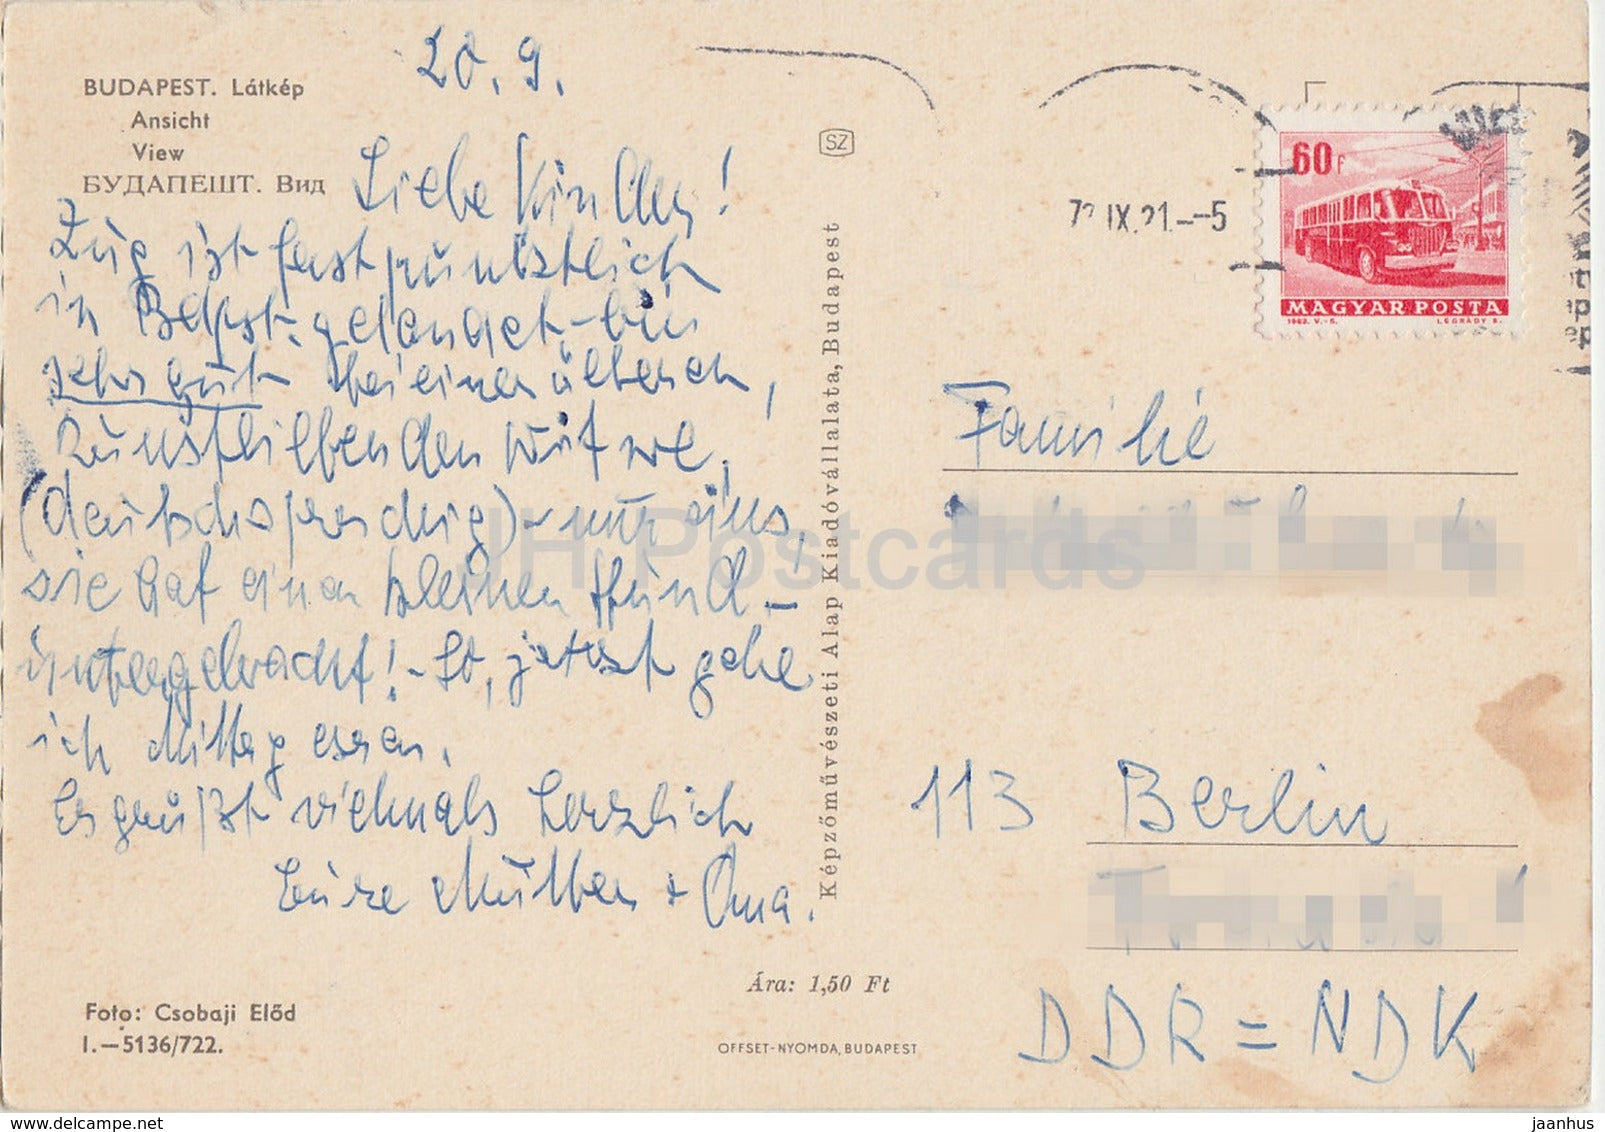 BUDAPEST. Látkép
Ansicht
View
БУДАПЕШТ. Вид
20. 9.
Liebe Kinder!
Zug ist fast pünktlich
in Bdpst. gelandet – bin
sehr gut bei einer älteren,
kunstliebenden Witwe,
(deutschsprachig) – nur eins,
sie hat einen kleinen Hund –
untergebracht! – So, jetzt gehe
ich Mittag essen.
Es grüßt vielmals herzlich
Eure Mutter + Oma.
Foto: Csobaji Előd
I.—5136/722.
SZ
Képzőművészeti Alap Kiadóvállalata, Budapest
Ára: 1,50 Ft
OFFSET-NYOMDA, BUDAPEST
IX. 21.--5
60f
MAGYAR POSTA
1963. V.-S. LEGRÁDY S.
Familie
113 Berlin
DDR = NDK
JH Postcards
All-in-one-line.com
jaanhus